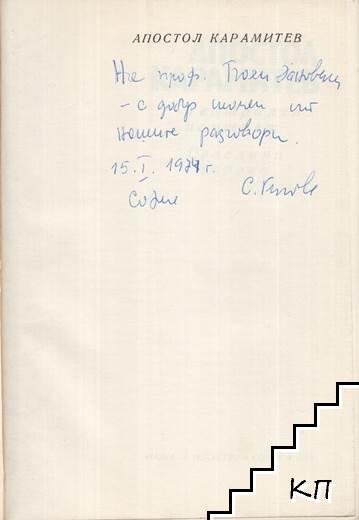 АПОСТОЛ КАРАМИТЕВ
На проф.
– с добър спомен от
нашите разговори.
15. I. 1974 г.
София С.
КП